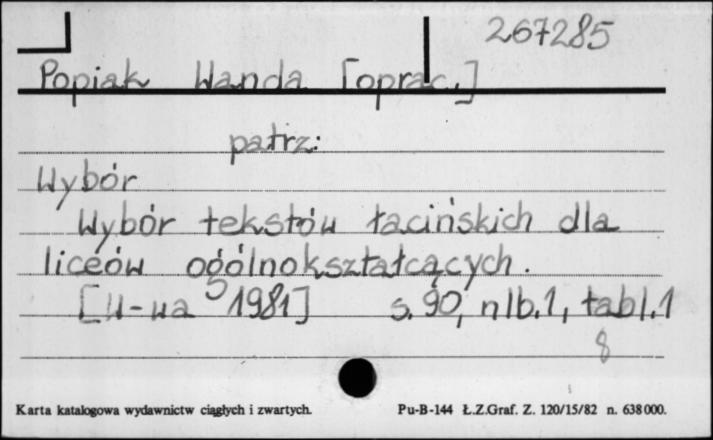 267285
Popiak Wanda [oprac.]
patrz:
Wybór
Wybór tekstów łacińskich dla
liceów ogólnokształcących.
[W-wa ⁵1981] s. 90, nlb. 1, tabl. 1
8
Karta katalogowa wydawnictw ciągłych i zwartych.
Pu-B-144 Ł.Z.Graf. Z. 120/15/82 n. 638000.